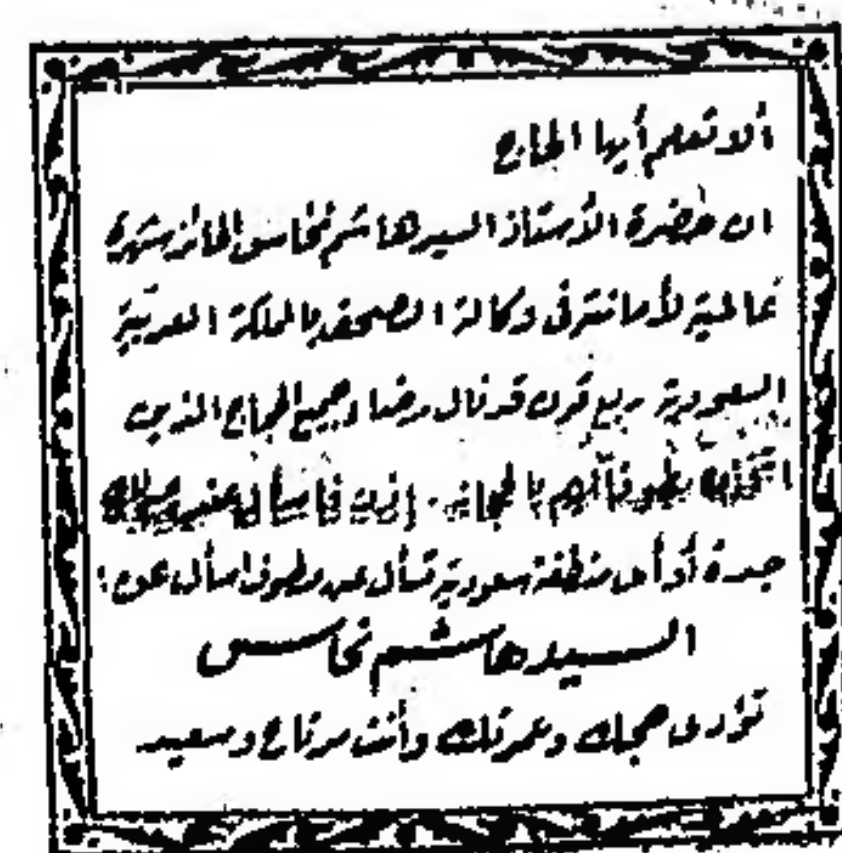 ألا تعلم أيها الحاج
ان حضرة الأستاذ السيد هاشم نحاس الحائز شهرة
عالمية لأمانته في وكالة الصحف بالمملكة العربية
السعودية ربع قرن قد نال رضا جميع الحجاج الذين
اتخذوه مطوفاً لهم بالحجاز. إذن فاسأل عند وصولك
جدة أو أى منطقة سعودية تسأل عن مطوف اسأل عن:
السيد هاشم نحاس
تؤدى حجك وعمرتك وأنت مرتاح وسعيد